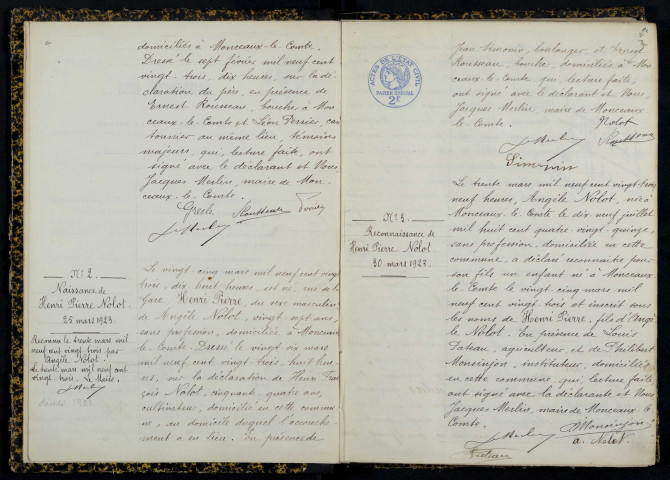 domiciliés à Monceaux-le-Comte.
Dressé le sept février mil neuf cent
vingt-trois, dix heures, sur la dé-
claration du père, en présence de
Ernest Rousseau, boucher à Mon-
ceaux-le-Comte et Léon Perrier, can-
tonnier au même lieu, témoins
majeurs, qui, lecture faite, ont
signé avec le déclarant et Nous,
Jacques Merlin, maire de Mon-
ceaux-le-Comte.
Rousseau
J. Merlin
N° 2
Naissance de
Henri Pierre Nolot
25 mars 1923
Reconnu le trente mars mil
neuf cent vingt trois par
Angèle Nolot.
Le trente mars mil neuf cent
vingt-trois. Le Maire,
J. Merlin
Le vingt-cinq mars mil neuf cent vingt
trois, dix huit heures, est né, rue de la
Gare, Henri Pierre, du sexe masculin
de Angèle Nolot, vingt sept ans,
sans profession, domiciliée à Monceaux
le-Comte. Dressé le vingt six mars
mil neuf cent vingt trois, huit heu-
res, sur la déclaration de Henri Fran
çois Nolot, cinquante quatre ans,
cultivateur, domicilié en cette commu-
ne, au domicile duquel l'accouche-
ment a eu lieu. En présence de
ACTES DE L'ÉTAT CIVIL
PAPIER SPÉCIAL
2F
Jean Simonin, boulanger et Ernest
Rousseau, boucher, domiciliés à Mon-
ceaux-le-Comte qui, lecture faite,
ont signé avec le déclarant et Nous,
Jacques Merlin, maire de Monceaux
le-Comte.
Nolot
J. Merlin Rousseau
Simonin
N° 3
Reconnaissance de
Henri Pierre Nolot
30 mars 1923
Le trente mars mil neuf cent vingt-trois
neuf heures, Angèle Nolot, née à
Monceaux-le-Comte le dix neuf juillet
mil huit cent quatre-vingt-quinze,
sans profession, domiciliée en cette
commune, a déclaré reconnaître pour
son fils un enfant né à Monceaux
le-Comte le vingt-cinq mars mil
neuf cent vingt-trois et inscrit sous
les noms de Henri Pierre, fils d'Angè
le Nolot. En présence de Louis
agriculteur et de Philibert
Monsinjon, instituteur, domiciliés
en cette commune qui, lecture faite
ont signé avec la déclarante et Nous
Jacques Merlin, maire de Monceaux-le-
Comte.
J. Merlin Monsinjon
a. Nolot